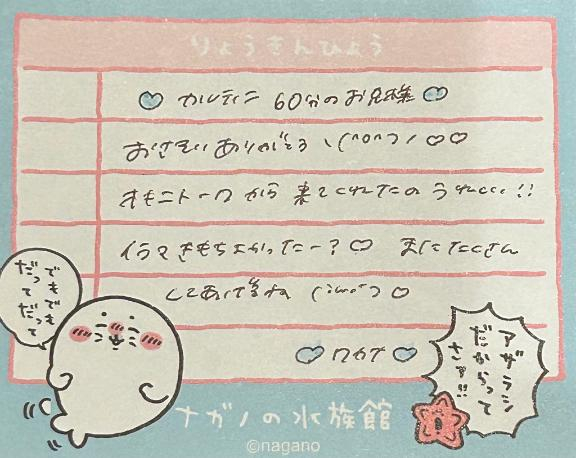 りょうきんひょう
♡ カルティニ 60分のお兄様 ♡
おさそいありがとう ヽ(^o^)ノ ♡♡
オキニトークから来てくれたのうれしい!!
イラマきもちよかったー?♡ またたくさん
してあげるね ♡
♡ ワカナ ♡
でもでも
だって
だって
アザラシ
だからって
さ!!
ナガノの水族館
©nagano